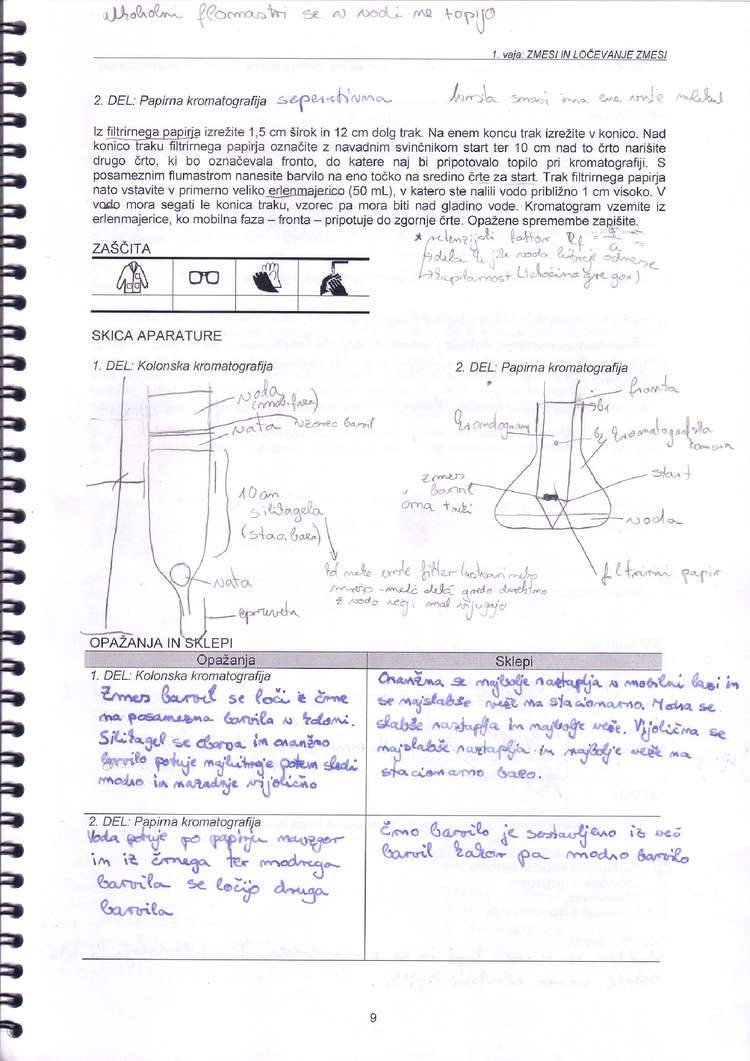 alkoholni flomastri se v vodi ne topijo
1. vaja: ZMESI IN LOČEVANJE ZMESI
2. DEL: Papirna kromatografija
snovi ima molekul
Iz filtrirnega papirja izrežite 1,5 cm širok in 12 cm dolg trak. Na enem koncu trak izrežite v konico. Nad
konico traku filtrirnega papirja označite z navadnim svinčnikom start ter 10 cm nad to črto narišite
drugo črto, ki bo označevala fronto, do katere naj bi pripotovalo topilo pri kromatografiji. S
posameznim flumastrom nanesite barvilo na eno točko na sredino črte za start. Trak filtrirnega papirja
nato vstavite v primerno veliko erlenmajerico (50 mL), v katero ste nalili vodo približno 1 cm visoko. V
vodo mora segati le konica traku, vzorec pa mora biti nad gladino vode. Kromatogram vzemite iz
erlenmajerice, ko mobilna faza – fronta – pripotuje do zgornje črte. Opažene spremembe zapišite.
* retenzijski faktor Rf =
voda hitreje odnese
kapilarnost (tekočina gre gor)
ZAŠČITA
SKICA APARATURE
1. DEL: Kolonska kromatografija
2. DEL: Papirna kromatografija
voda
(mob. faza)
vata
vzorec barvil
10 cm
silikagela
(stac. faza)
vata
epruveta
fronta
kromatogram
kromatografska
komora
zmes
barvil
start
voda
filtrirni papir
z vodo
OPAŽANJA IN SKLEPI
Opažanja
Sklepi
1. DEL: Kolonska kromatografija
Zmes barvil se loči iz črne
na posamezna barvila v koloni.
Silikagel se obarva in oranžno
barvilo potuje najhitreje potem sledi
modro in nazadnje vijolično
Oranžna se najbolje raztaplja v mobilni fazi in
se najslabše veže na stacionarno. Modra se
slabše raztaplja in najbolje veže. Vijolična se
najslabše raztaplja in najbolje veže na
stacionarno fazo.
2. DEL: Papirna kromatografija
Voda potuje po papirju navzgor
in iz črnega ter modrega
barvila se ločijo druga
barvila
Črno barvilo je sestavljeno iz več
barvil kakor pa modro barvilo
9